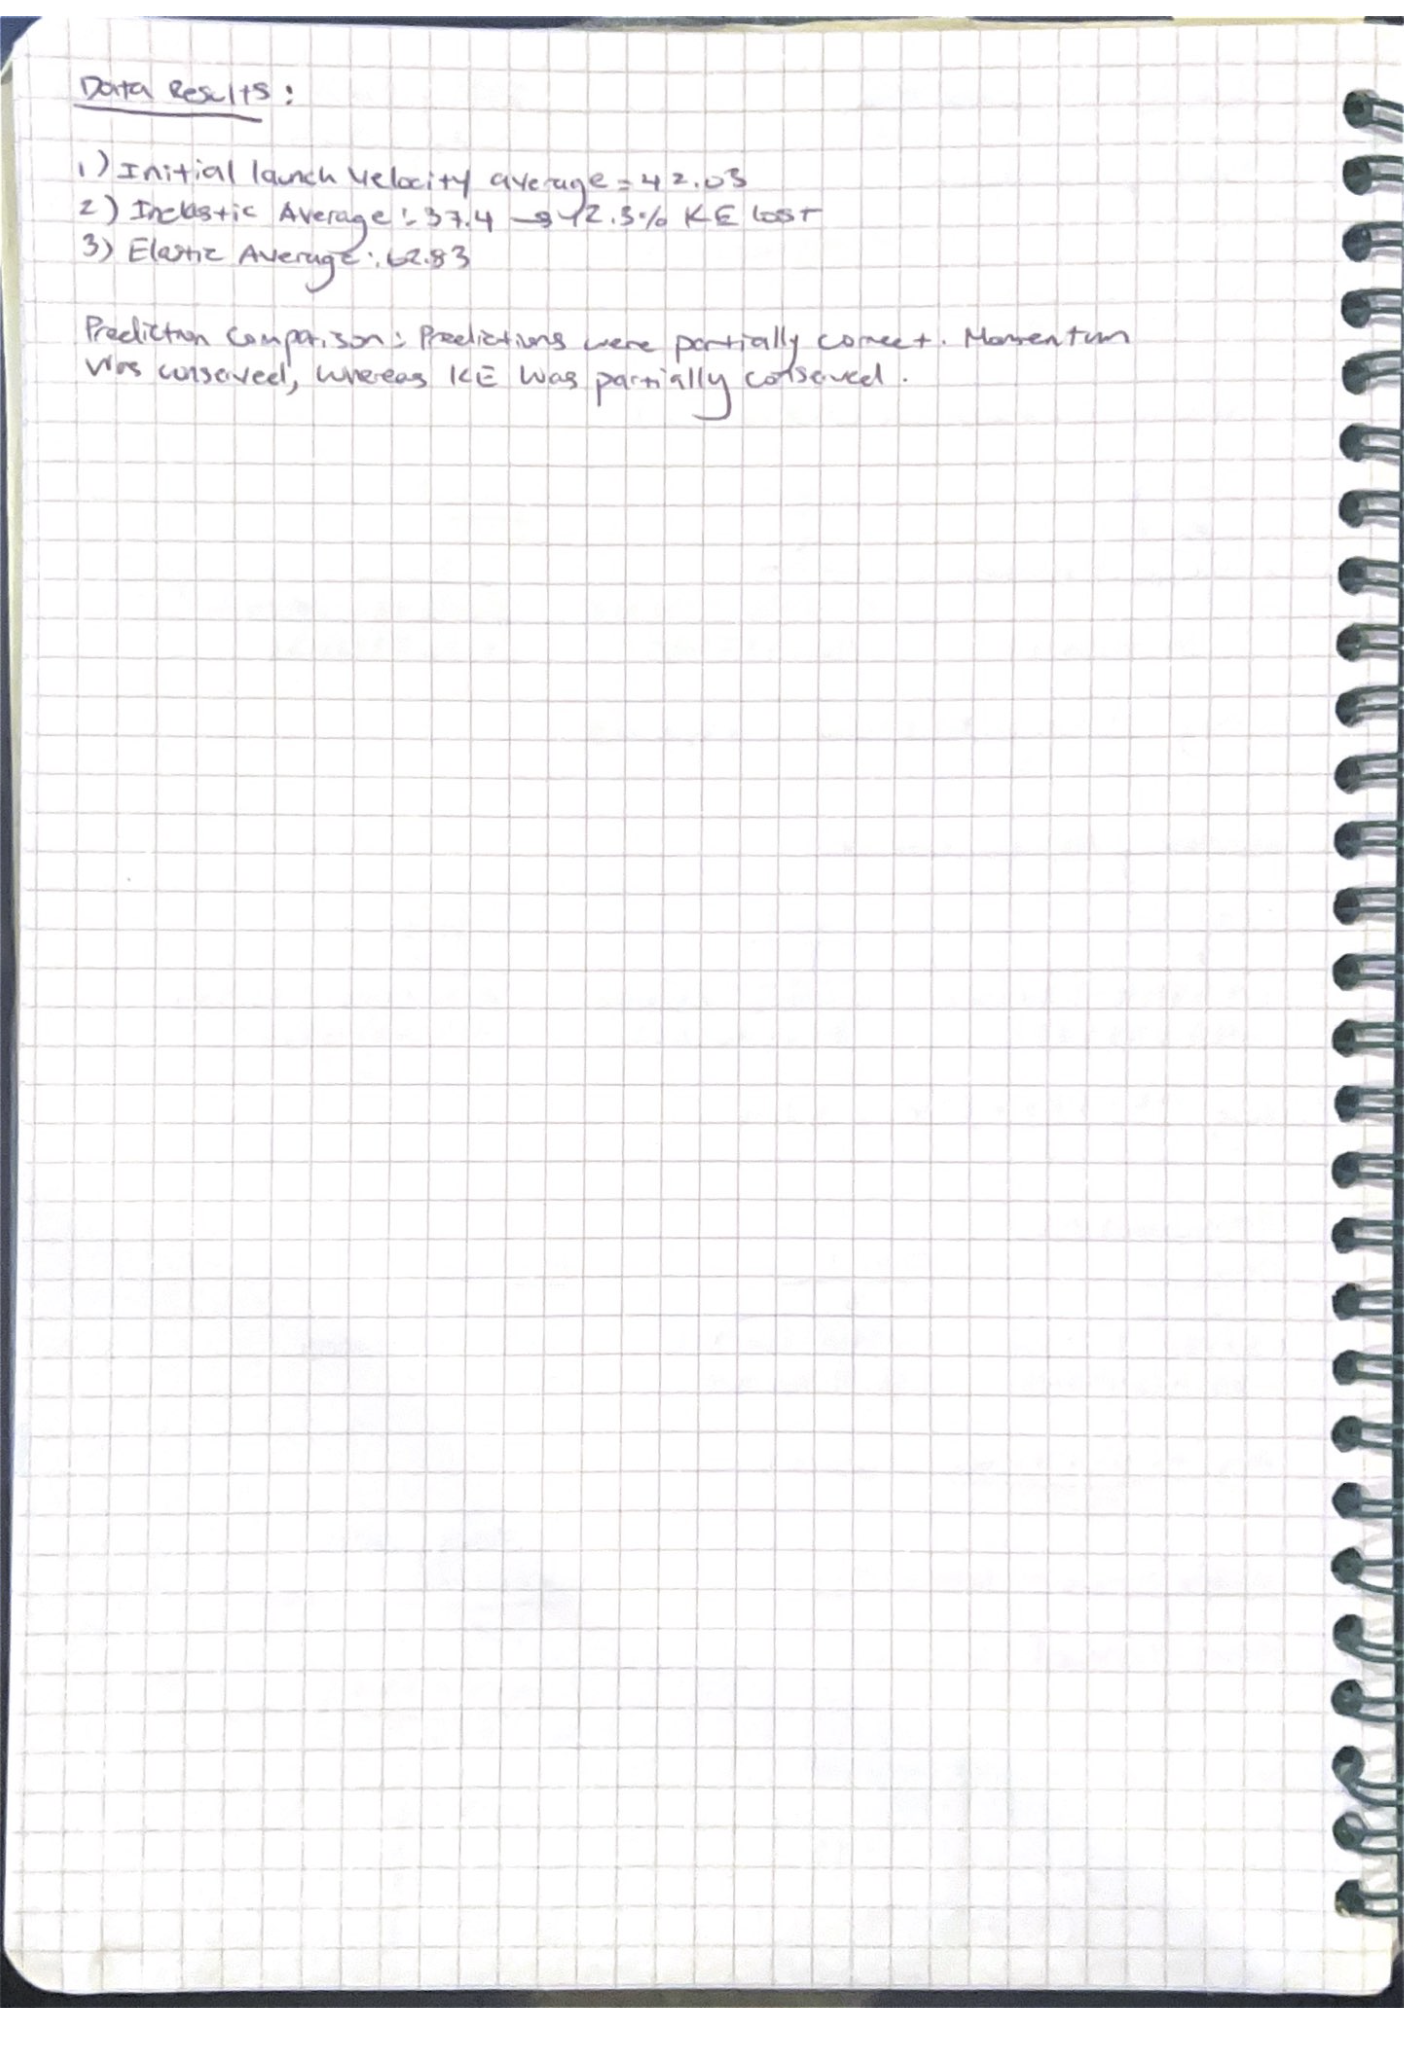 Data Results:
1) Initial launch velocity average = 42.03
2) Inelastic Average: 37.4 → 42.3% KE lost
3) Elastic Average: 62.83
Prediction Comparison: Predictions were partially correct. Momentum
was conserved, whereas KE was partially conserved.